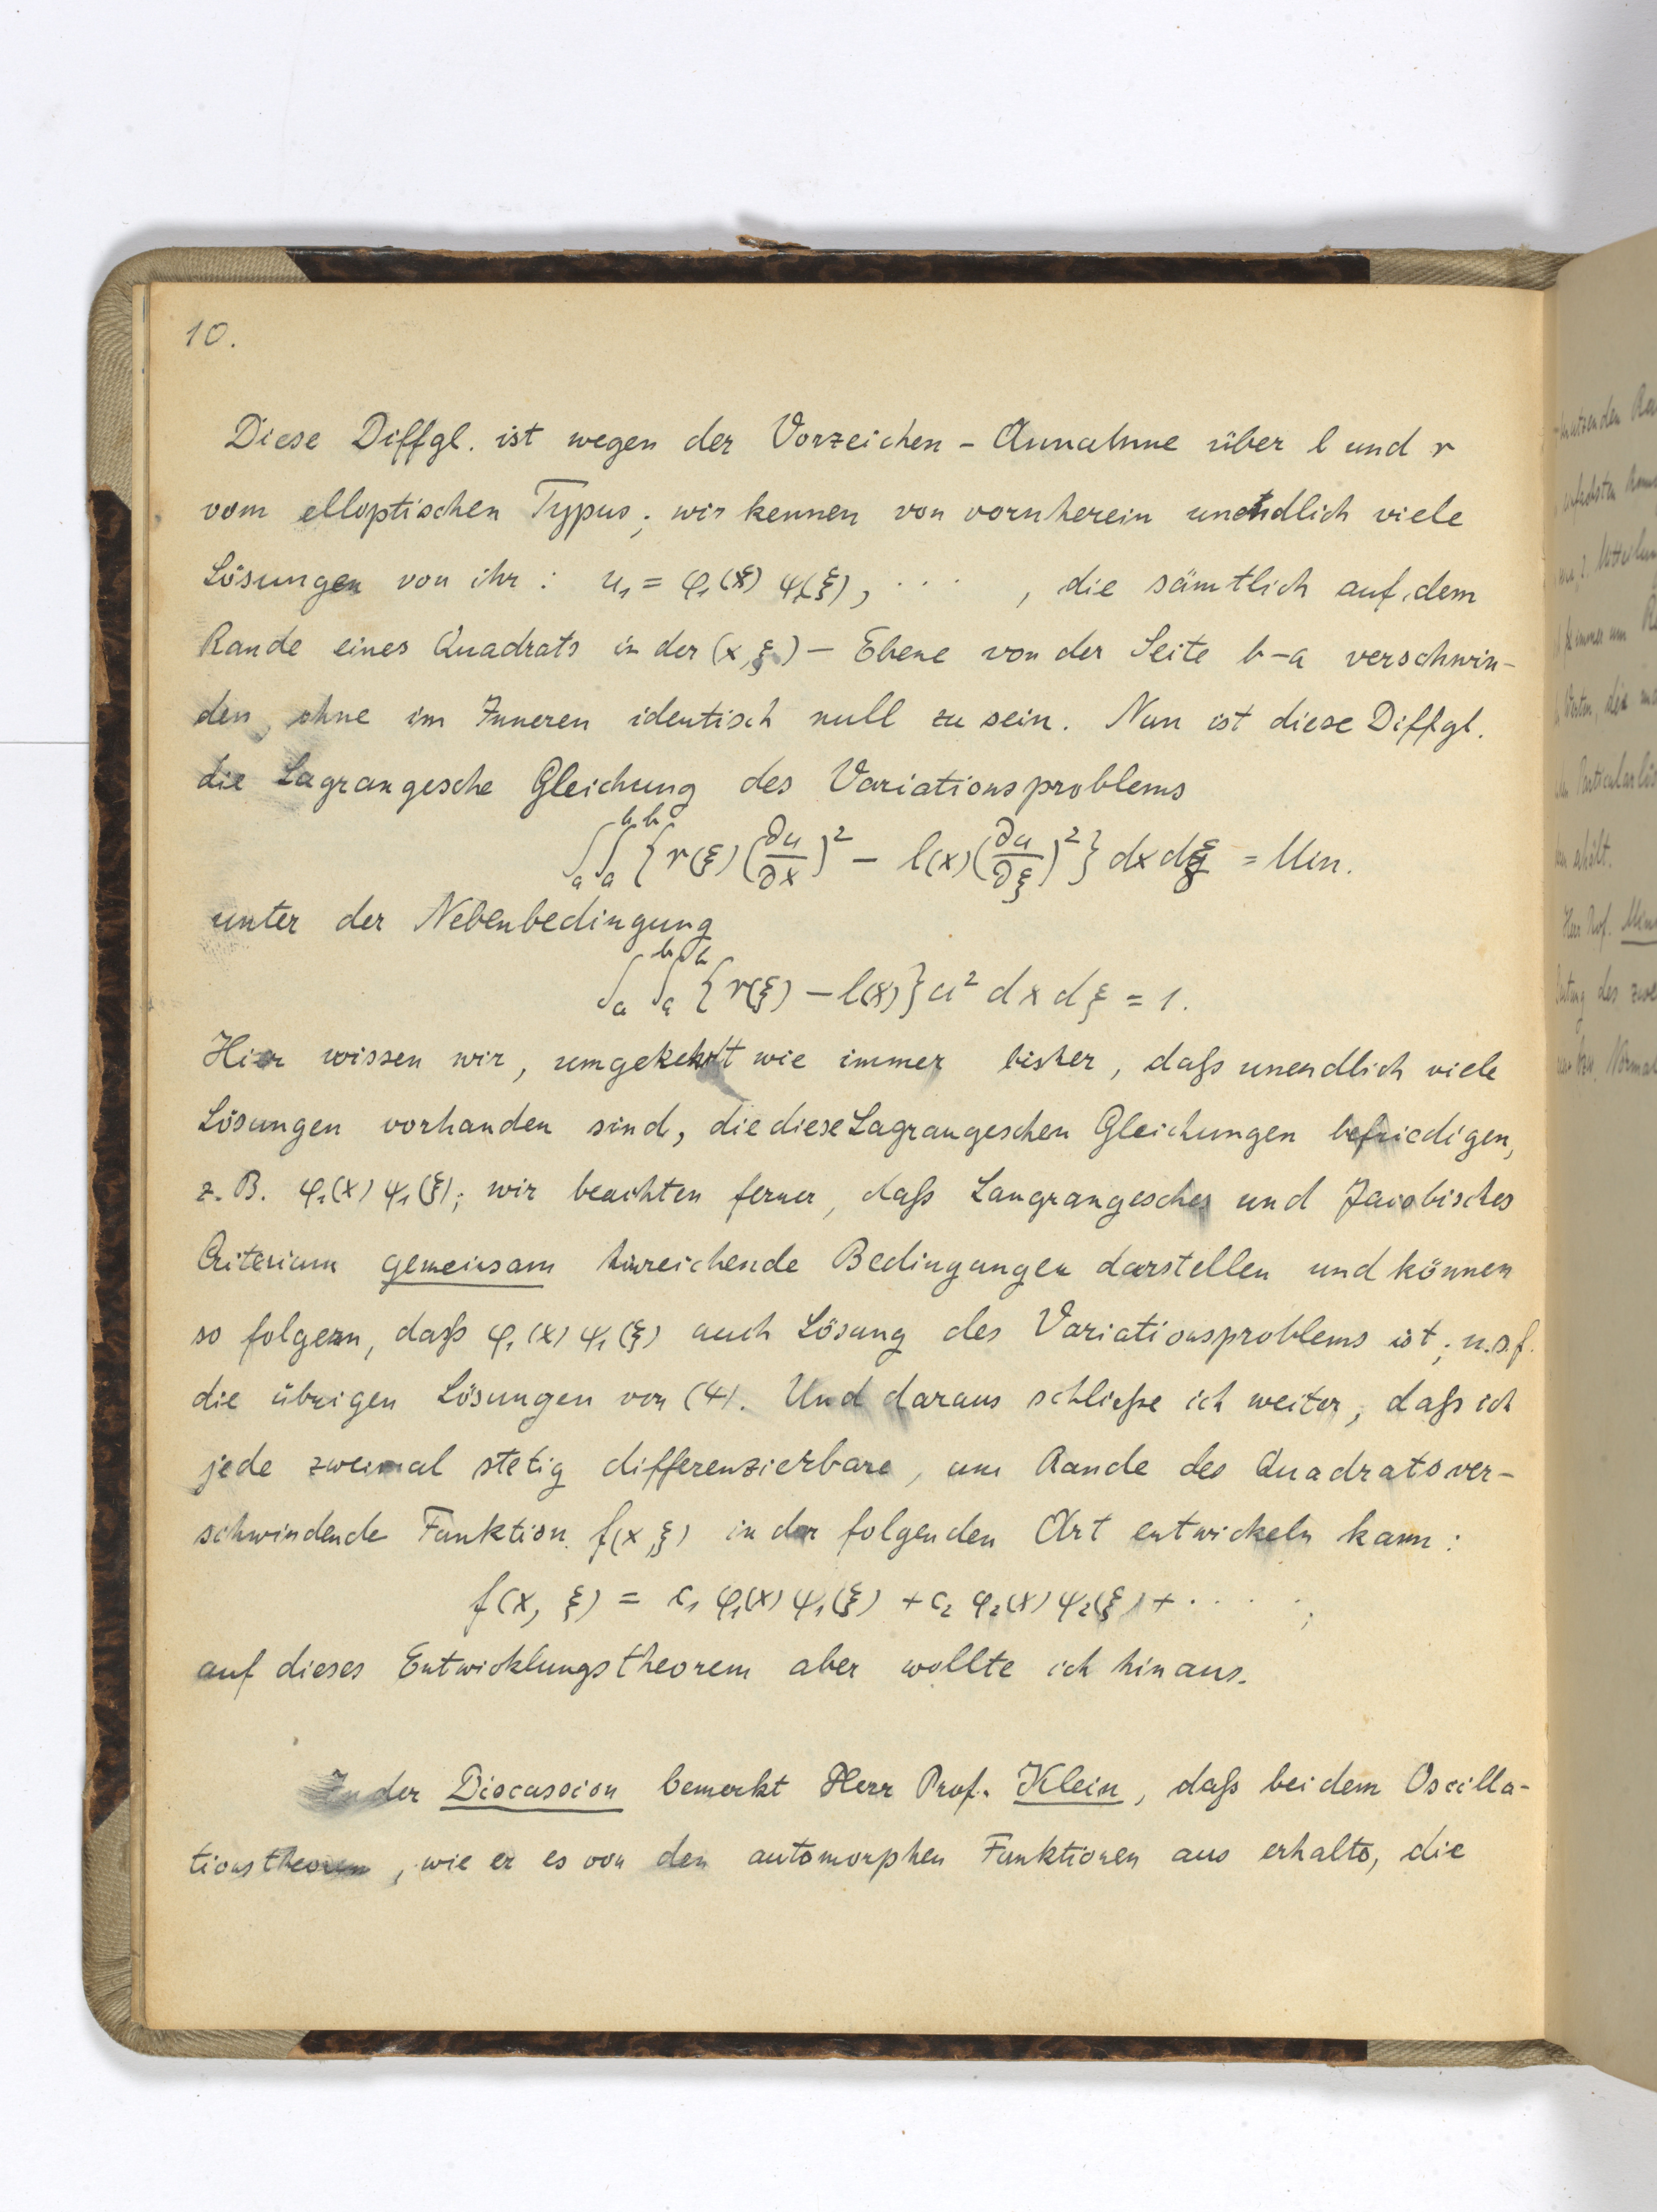 10.
Diese Diffgl. ist wegen der Vorzeichen - Annahme über l und r
vom elloptischen Typus; wir kennen von vornherein unendlich viele
Lösungen von ihr: u₁ = φ₁(x) ψ₁(ξ), . . . , die sämtlich auf dem
Rande eines Quadrats in der (x, ξ) - Ebene von der Seite b-a verschwin-
den, ohne im Inneren identisch null zu sein. Nun ist diese Diffgl.
die Lagrangesche Gleichung des Variationsproblems
∫ₐᵇ∫ₐᵇ {r(ξ) (∂u/∂x)² - l(x) (∂u/∂ξ)²} dx dξ = Min.
unter der Nebenbedingung
∫ₐᵇ∫ₐᵇ {r(ξ) - l(x)} u² dx dξ = 1.
Hier wissen wir, umgekehrt wie immer bisher, daß unendlich viele
Lösungen vorhanden sind, die diese Lagrangeschen Gleichungen befriedigen,
z. B. φ₁(x) ψ₁(ξ); wir beachten ferner, daß Langrangesches und Jacobisches
Criterium gemeinsam hinreichende Bedingungen darstellen und können
so folgern, daß φ₁(x) ψ₁(ξ) auch Lösung des Variationsproblems ist; u.s.f.
die übrigen Lösungen von (4). Und daraus schließe ich weiter, daß ich
jede zweimal stetig differenzierbare, am Rande des Quadrats ver-
schwindende Funktion f(x, ξ) in der folgenden Art entwickeln kann:
f(x, ξ) = c₁ φ₁(x) ψ₁(ξ) + c₂ φ₂(x) ψ₂(ξ) + . . . . ;
auf dieses Entwicklungstheorem aber wollte ich hinaus.
In der Discussion bemerkt Herr Prof. Klein, daß bei dem Oscilla-
tionstheorem, wie er es von den automorphen Funktionen aus erhalte, die